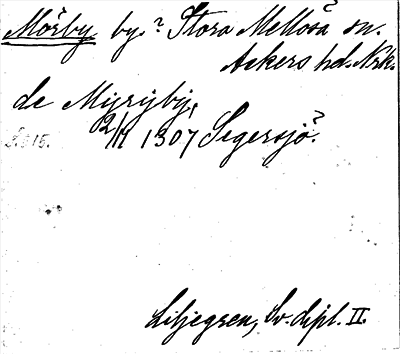 Mörby by.? Stora Mellösa sn.
Askers hd. Nrk.
de Myrýby,
2/7 1307 Segersjö?
S. 515.
Liljegren, Sv. dipl. II.